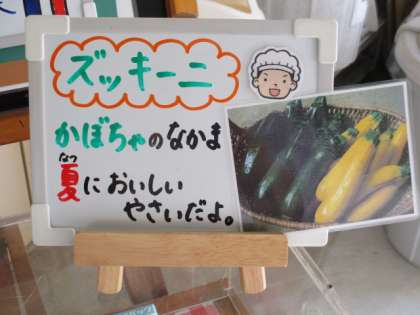 ズッキーニ
かぼちゃのなかま
夏においしい
やさいだよ。